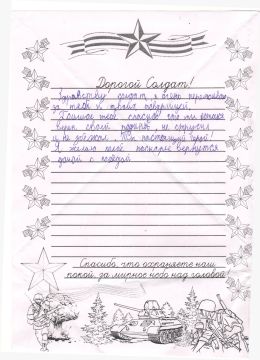 Дорогой Солдат!
Здравствуй солдат, я очень переживаю
за тебя и твоих товарищей.
Большое тебе спасибо что ты
верен своей родине, не струсил
и не Ты настоящий герой!
Я желаю тебе поскорее вернутся
домой с победой
Спасибо, что охраняете наш
покой, за мирное небо над головой